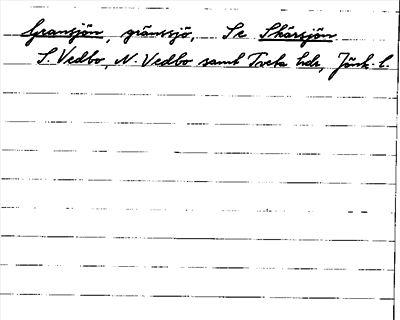 Gransjön, gränssjö, Se Skärsjön
S. Vedbo, N. Vedbo samt Tveta hdr, Jönk. l.